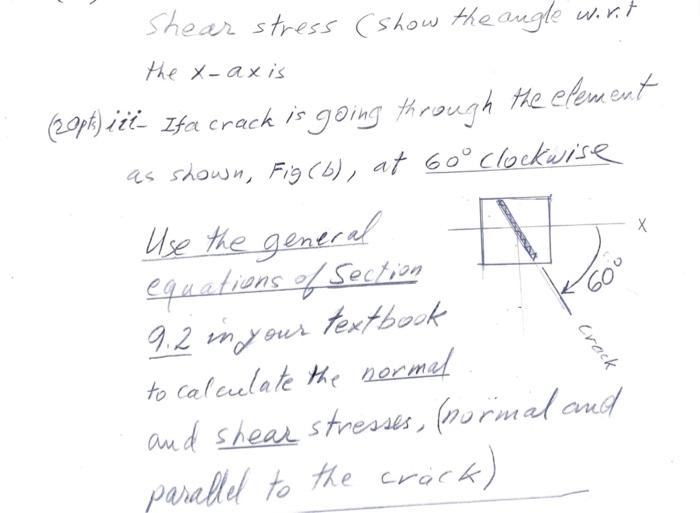 Shear stress (show the angle w.r.t
the x-axis
(20pts) iii- If a crack is going through the element
as shown, Fig(b), at 60° clockwise
Use the general
equations of Section
9.2 in your textbook
to calculate the normal
and shear stresses, (normal and
parallel to the crack)
X
60°
crack